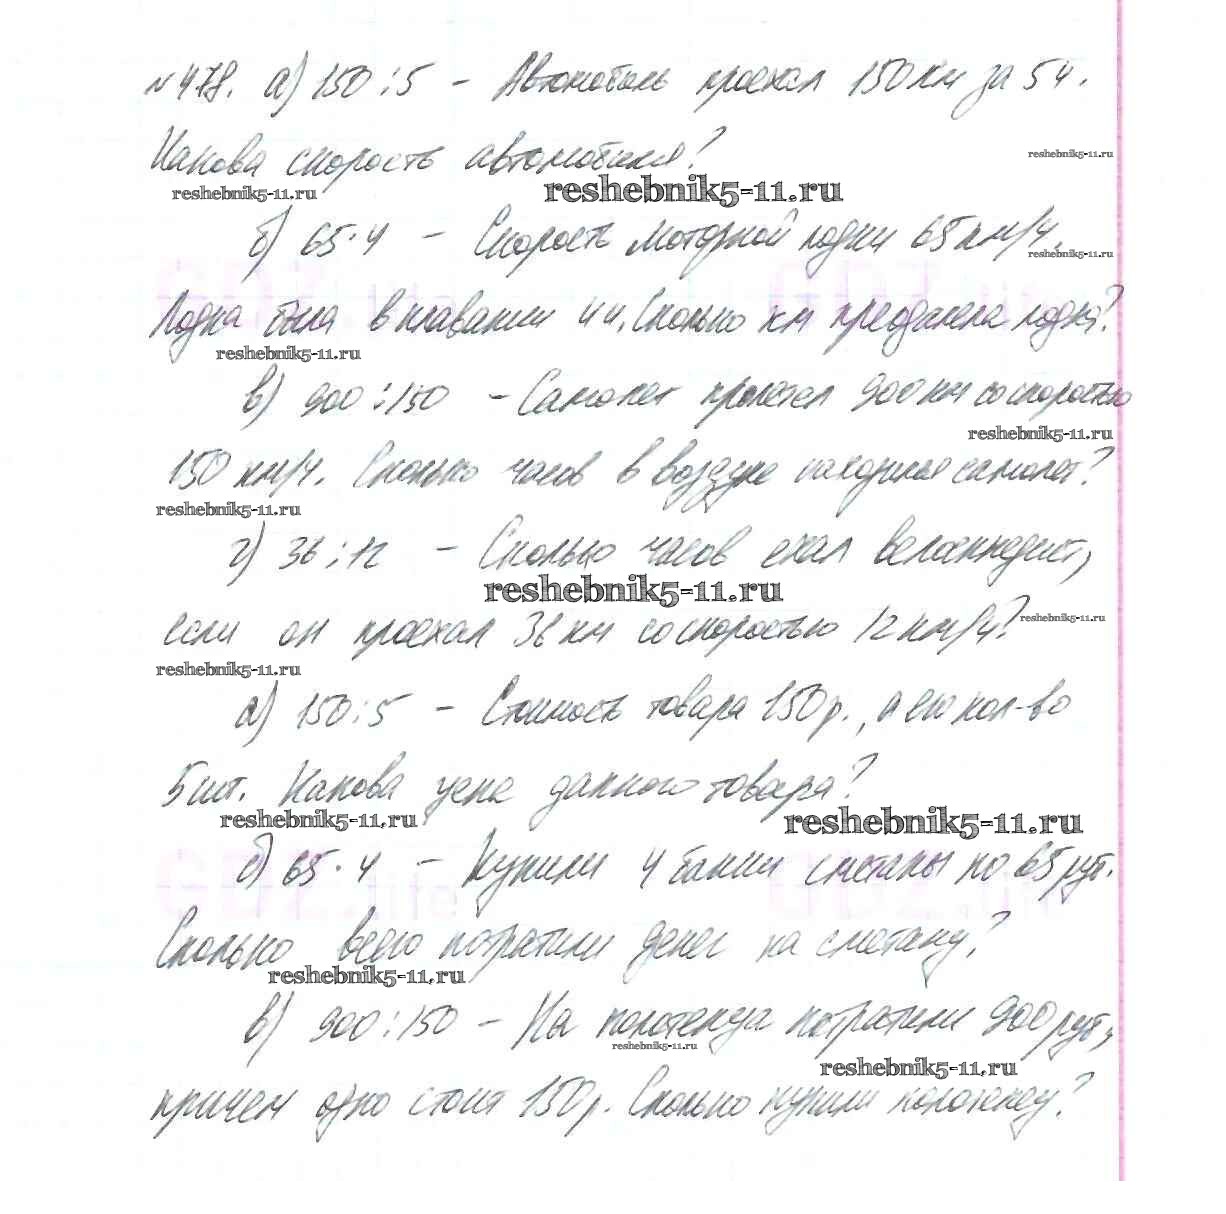 №478. а) 150 : 5 – Автомобиль проехал 150 км за 5 ч.
Какова скорость автомобиля?
reshebnik5-11.ru
reshebnik5-11.ru reshebnik5-11.ru
б) 65 · 4 – Скорость моторной лодки 65 км/ч.
reshebnik5-11.ru
GDZ.life GDZ.life
Лодка была в плавании 4 ч. Сколько км преодолела лодка?
reshebnik5-11.ru
в) 900 : 150 – Самолет пролетел 900 км со скоростью
reshebnik5-11.ru
150 км/ч. Сколько часов в воздухе находился самолет?
reshebnik5-11.ru
г) 36 : 12 – Сколько часов ехал велосипедист,
reshebnik5-11.ru
если он проехал 36 км со скоростью 12 км/ч?
reshebnik5-11.ru
reshebnik5-11.ru
а) 150 : 5 – Стоимость товара 150 р., а его кол-во
5 шт. Какова цена данного товара?
reshebnik5-11.ru reshebnik5-11.ru
б) 65 · 4 – Купили 4 банки сметаны по 65 руб.
GDZ.life GDZ.life
Сколько всего потратили денег на сметану?
reshebnik5-11.ru
в) 900 : 150 – На полотенца потратили 900 руб,
reshebnik5-11.ru
reshebnik5-11.ru
причем одно стоит 150 р. Сколько купили полотенец?